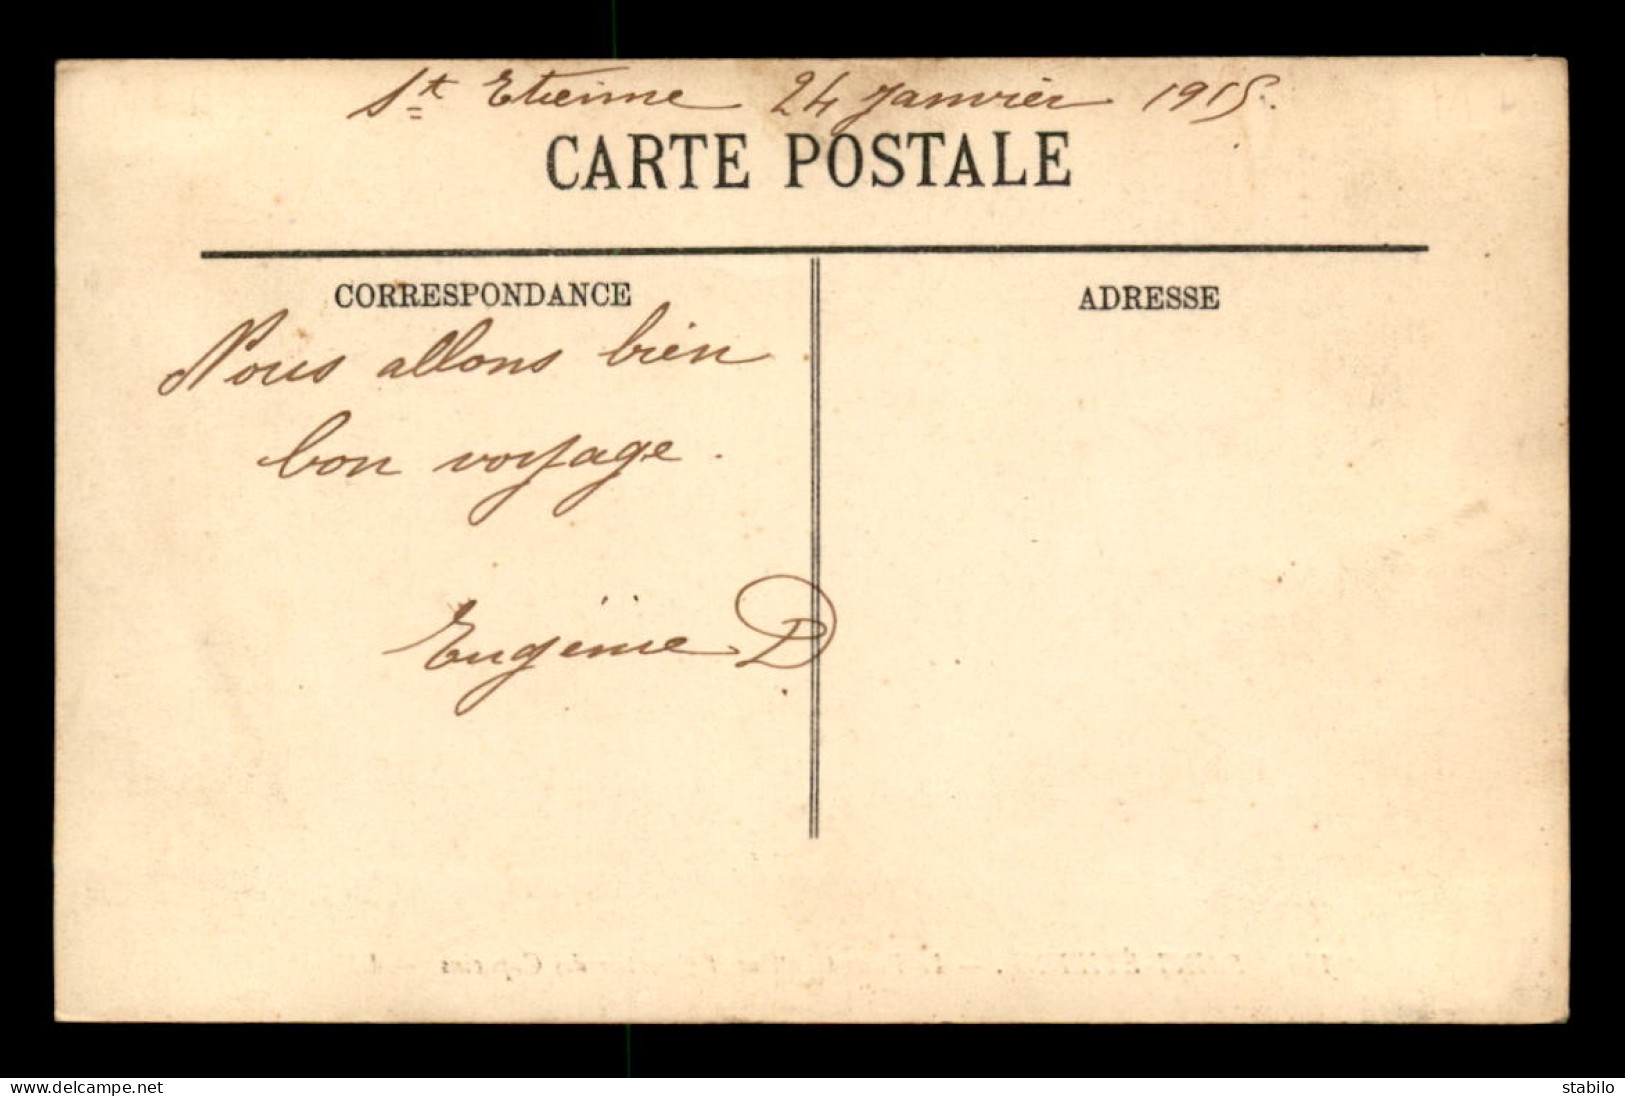 St Etienne 24 Janvier 1915.
CARTE POSTALE
CORRESPONDANCE
ADRESSE
Nous allons bien
bon voyage.
Eugènie D
www.delcampe.net
stabilo